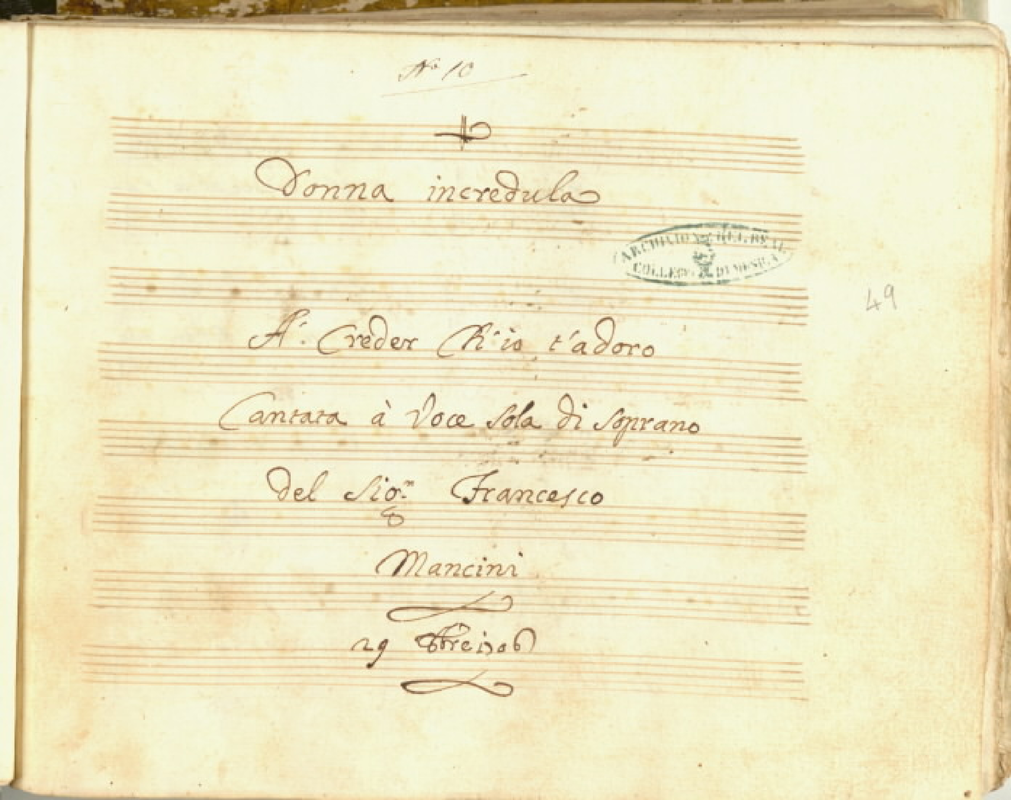 N.º 10
Donna incredula
ARCHIVIO DEL REAL
COLLEGIO DI MUSICA
49
A' Creder Ch'io t'adoro
Cantata à Voce sola di soprano
del Sig.r Francesco
Mancini
29